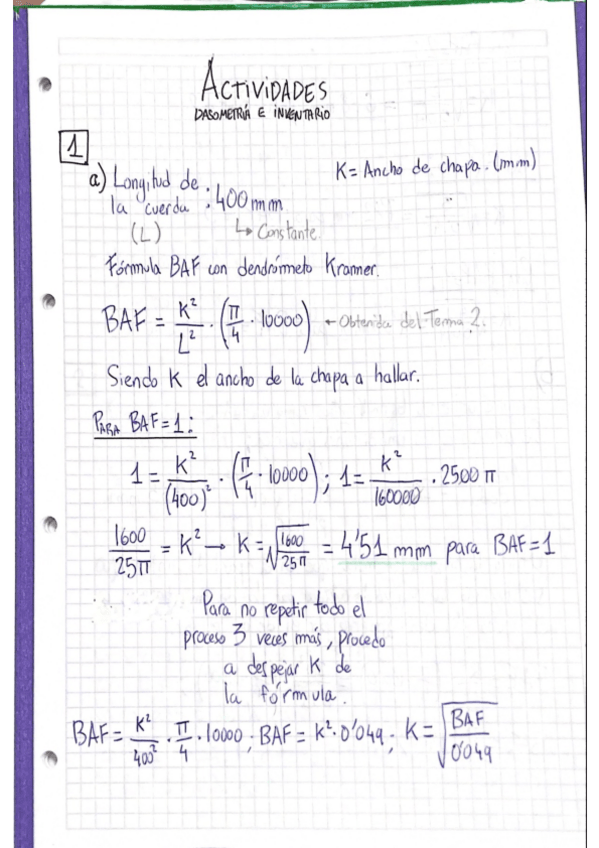 ACTIVIDADES
DASOMETRÍA E INVENTARIO
1
a) Longitud de la cuerda : 400 mm
K = Ancho de chapa. (mm)
(L) ↳ Constante.
Fórmula BAF con dendrómeto Kramer.
BAF = K²/L² · (π/4 · 10000) ← Obtenida del Tema 2.
Siendo K el ancho de la chapa a hallar.
PARA BAF = 1:
1 = K²/(400)² · (π/4 · 10000) ; 1 = K²/160000 · 2500 π
1600/25π = K² → K = √(1600/25π) = 4'51 mm para BAF = 1
Para no repetir todo el
proceso 3 veces más, procedo
a despejar K de
la fórmula.
BAF = K²/400² · π/4 · 10000 ; BAF = K² · 0'049 ; K = √(BAF/0'049)